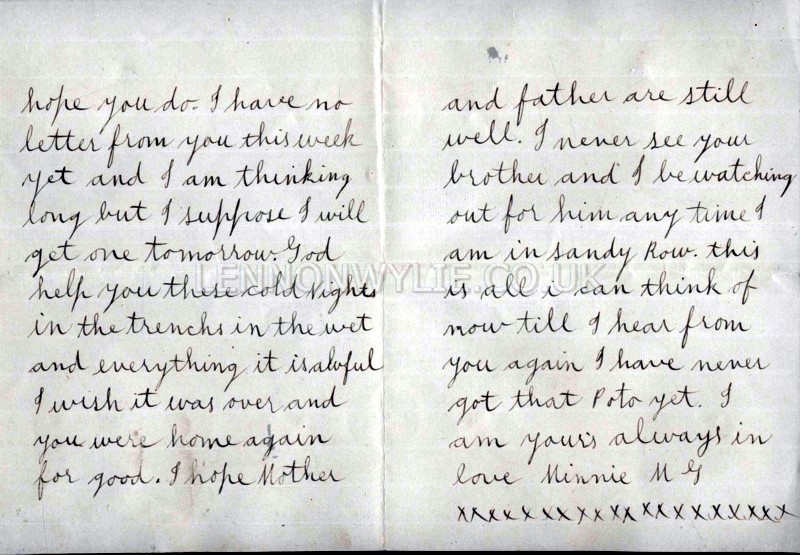 hope you do. I have no
letter from you this week
yet and I am thinking
long but I suppose I will
get one tomorrow. God
help you these cold Nights
in the trenchs in the wet
and everything it is awful
I wish it was over and
you were home again
for good. I hope Mother
and father are still
well. I never see your
brother and I be watching
out for him any time I
am in Sandy Row. this
is all i can think of
now till I hear from
you again I have never
got that Poto yet. I
am yours always in
love Minnie M G
xxxxxxxxxxxxxxxxxxxx
LENNONWYLIE.CO.UK